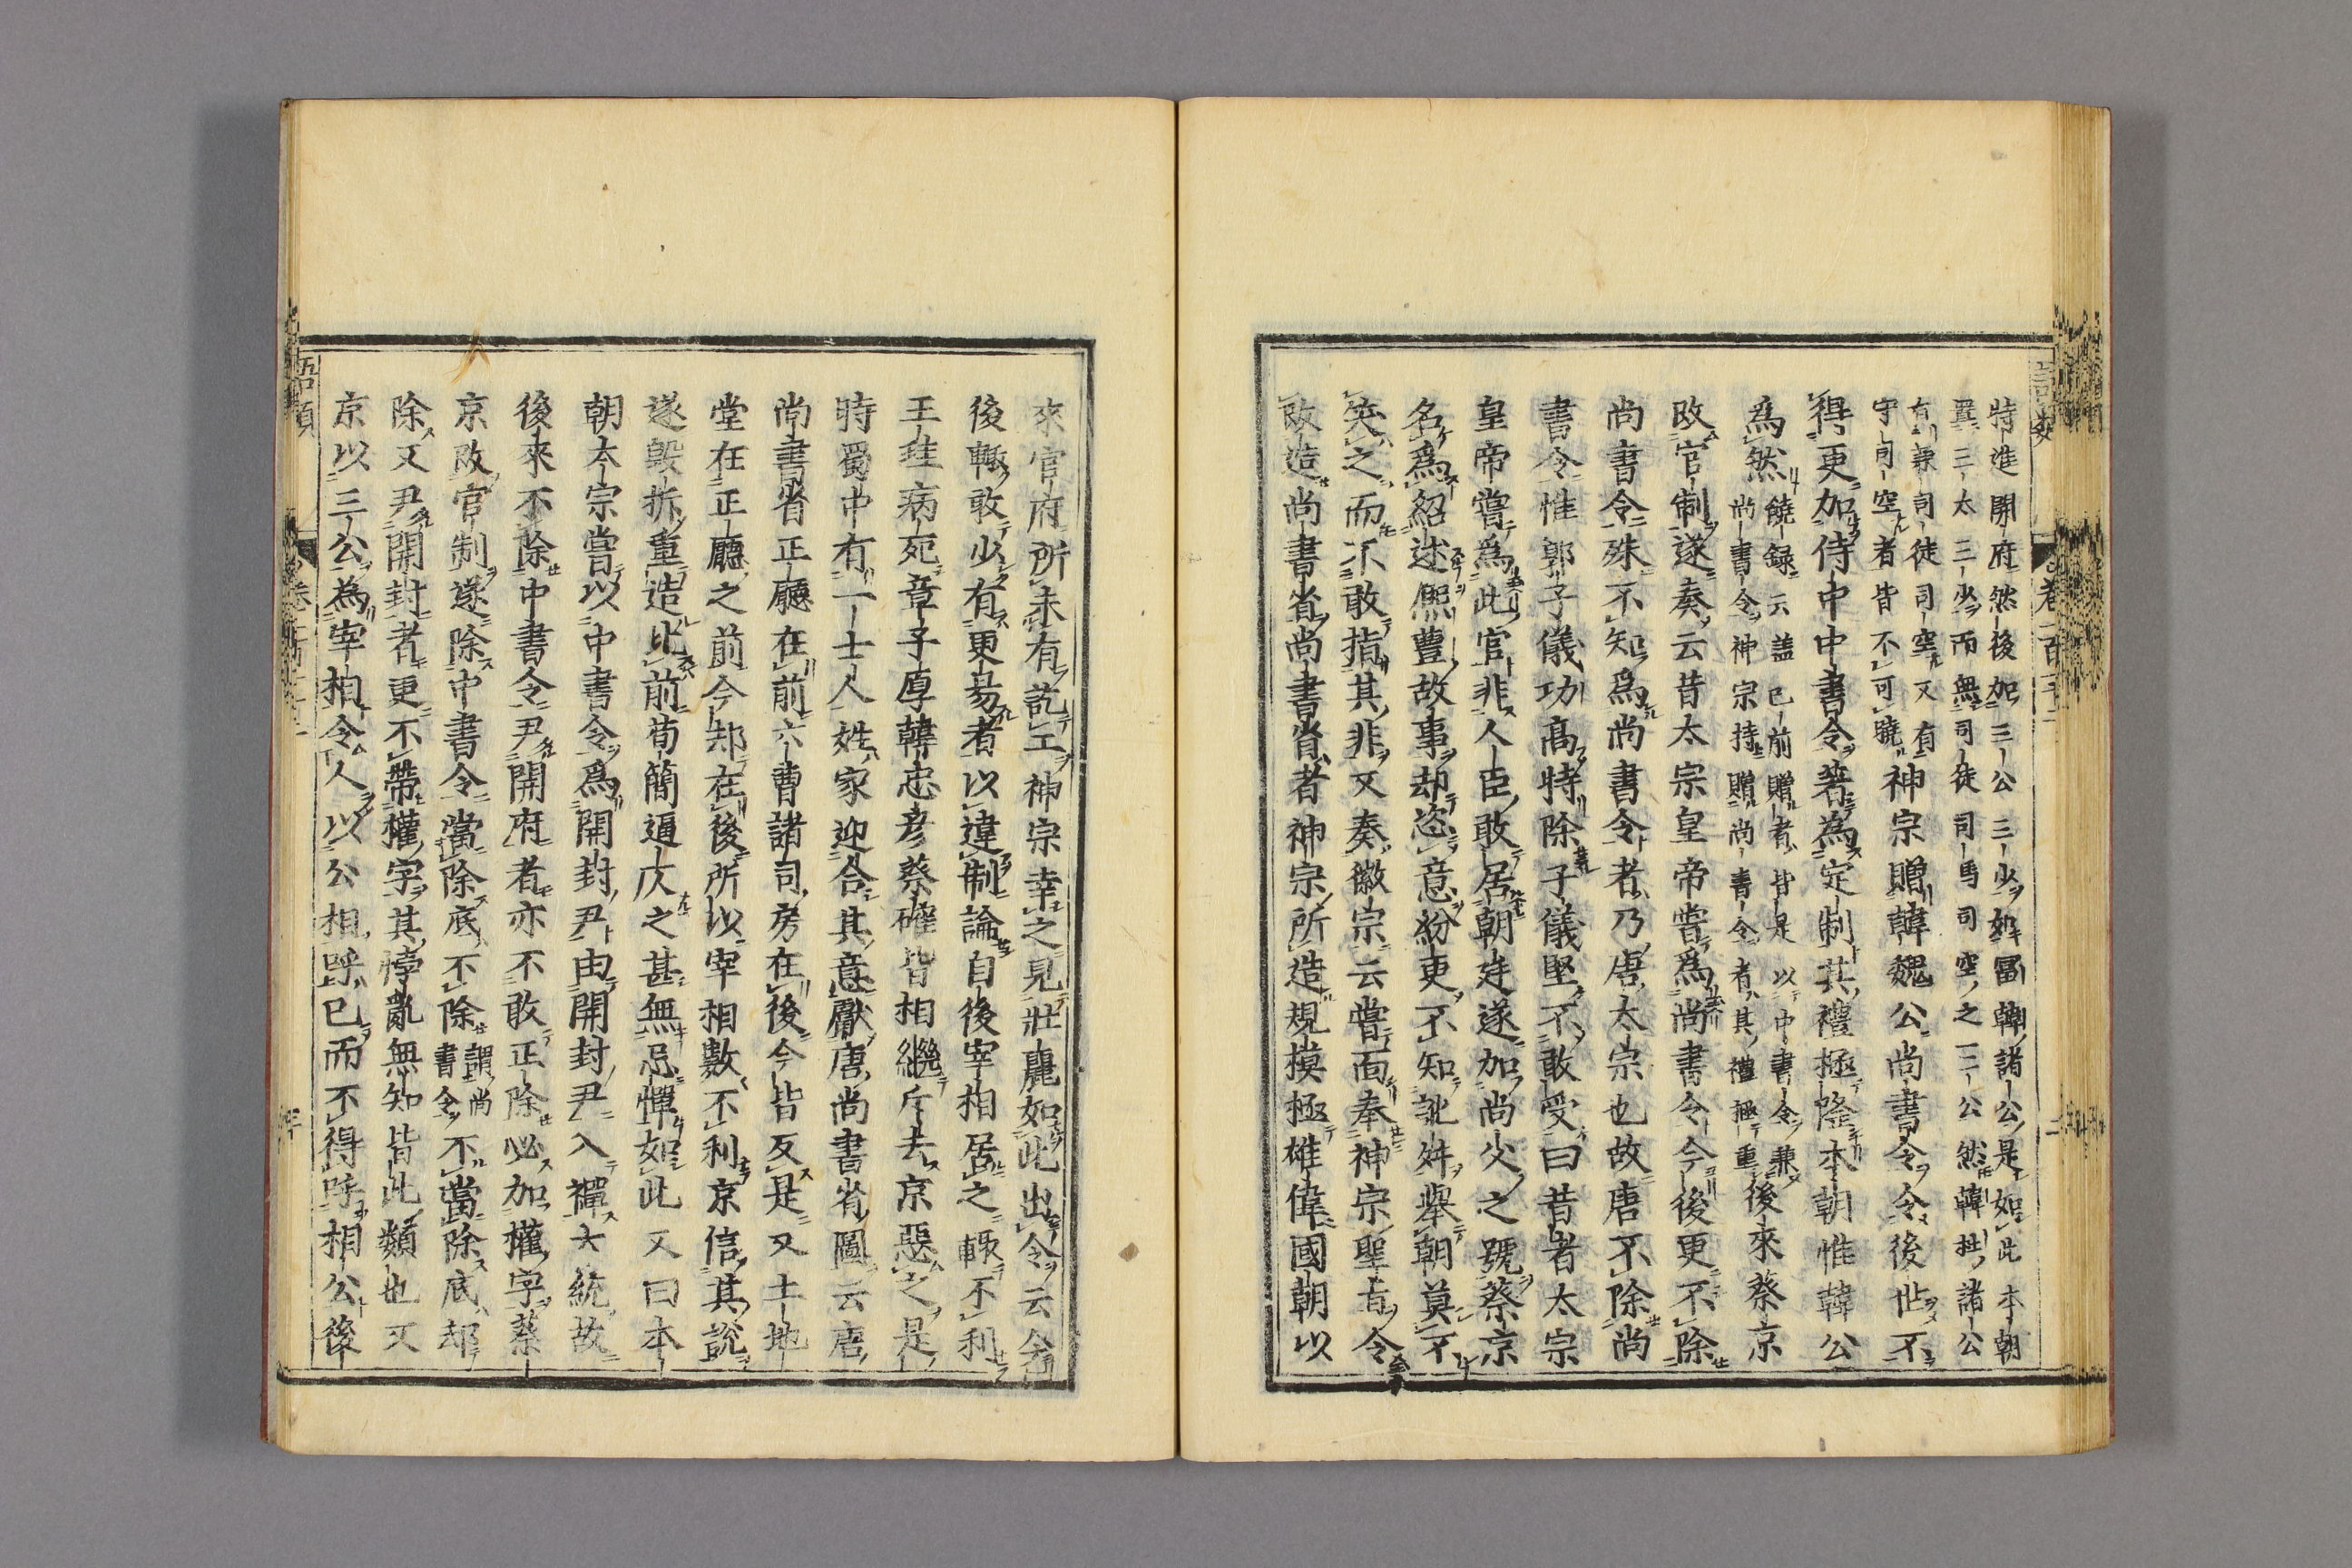 特進開府然後加三公三少如富韓諸公是如此本朝
置三太三少而無司徒司馬司空之三公然韓杜諸公
有兼司徒司空又有
守司空者皆不可曉神宗贈韓魏公尚書令令後世不
得更加侍中中書令著為定制其禮極隆本朝惟韓公
爲然饒録云蓋已前贈者皆是以中書令兼
尚書令神宗特贈尚書令者其禮極重後來蔡京
改官制遂奏云昔太宗皇帝嘗爲尚書令今後更不除
尚書令殊不知爲尚書令者乃唐太宗也故唐不除尚
書令惟郭子儀功高特除子儀堅不敢受曰昔者太宗
皇帝嘗爲此官非人臣敢居朝廷遂加尚父之號蔡京
名爲紹述熙豐故事却恣意紛更不知訛舛舉朝莫不
笑之而不敢指其非又奏徽宗云嘗面奉神宗聖旨令
改造尚書省尚書省者神宗所造規摸極雄偉國朝以
來官府所未有訖工神宗幸之見壯麗如此出令云今
後輙敢少有更易者以違制論自後宰相居之輙不利
王珪病死章子厚韓忠彦蔡確皆相繼斥去京惡之是
時蜀中有一士人姓家迎合其意獻唐尚書省圖云唐
尚書省正廳在前六曹諸司房在後今皆反是又土地
堂在正廳之前今却在後所以宰相數不利京信其說
遂毀拆重造比前苟簡逼仄之甚無忌憚如此又曰本
朝太宗嘗以中書令爲開封尹由開封尹入禪大統故
後來不除中書令尹開府者亦不敢正除必加權字蔡
京改官制遂除中書令當除底不除謂尚
書令不當除底却
除又尹開封者更不帶權字其悖亂無知皆此類也又
京以三公為宰相令人以公相呼已而不得呼相公後
語類